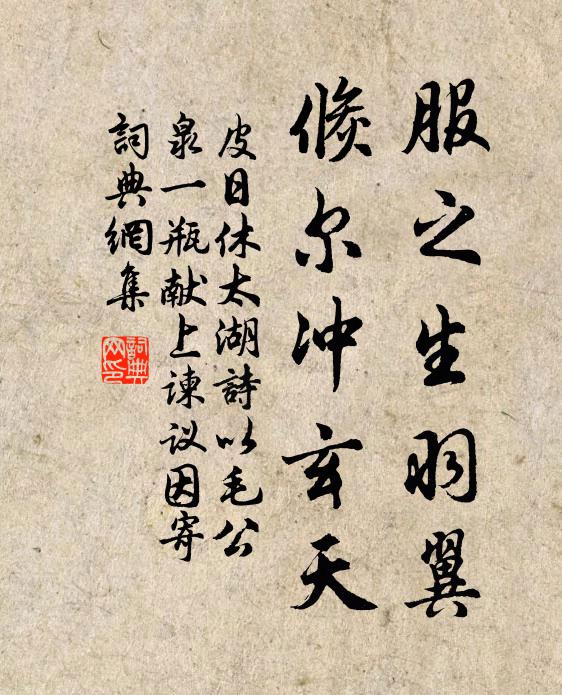 服之生羽翼
倏尔冲玄天
皮日休太湖詩以毛公
泉一瓶献上谏议因寄
詞典網集
詞典网印